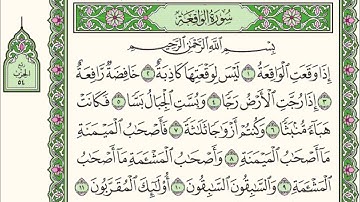 سُورَةُ الوَاقِعَةِ
بِسْمِ اللَّهِ الرَّحْمَٰنِ الرَّحِيمِ
إِذَا وَقَعَتِ الْوَاقِعَةُ ١ لَيْسَ لِوَقْعَتِهَا كَاذِبَةٌ ٢ خَافِضَةٌ رَّافِعَةٌ
٣ إِذَا رُجَّتِ الْأَرْضُ رَجًّا ٤ وَبُسَّتِ الْجِبَالُ بَسًّا ٥ فَكَانَتْ
هَبَاءً مُّنبَثًّا ٦ وَكُنتُمْ أَزْوَاجًا ثَلَاثَةً ٧ فَأَصْحَابُ الْمَيْمَنَةِ
مَا أَصْحَابُ الْمَيْمَنَةِ ٨ وَأَصْحَابُ الْمَشْأَمَةِ مَا أَصْحَابُ
الْمَشْأَمَةِ ٩ وَالسَّابِقُونَ السَّابِقُونَ ١٠ أُولَٰئِكَ الْمُقَرَّبُونَ ١١
ربع
الحزب
٥٤